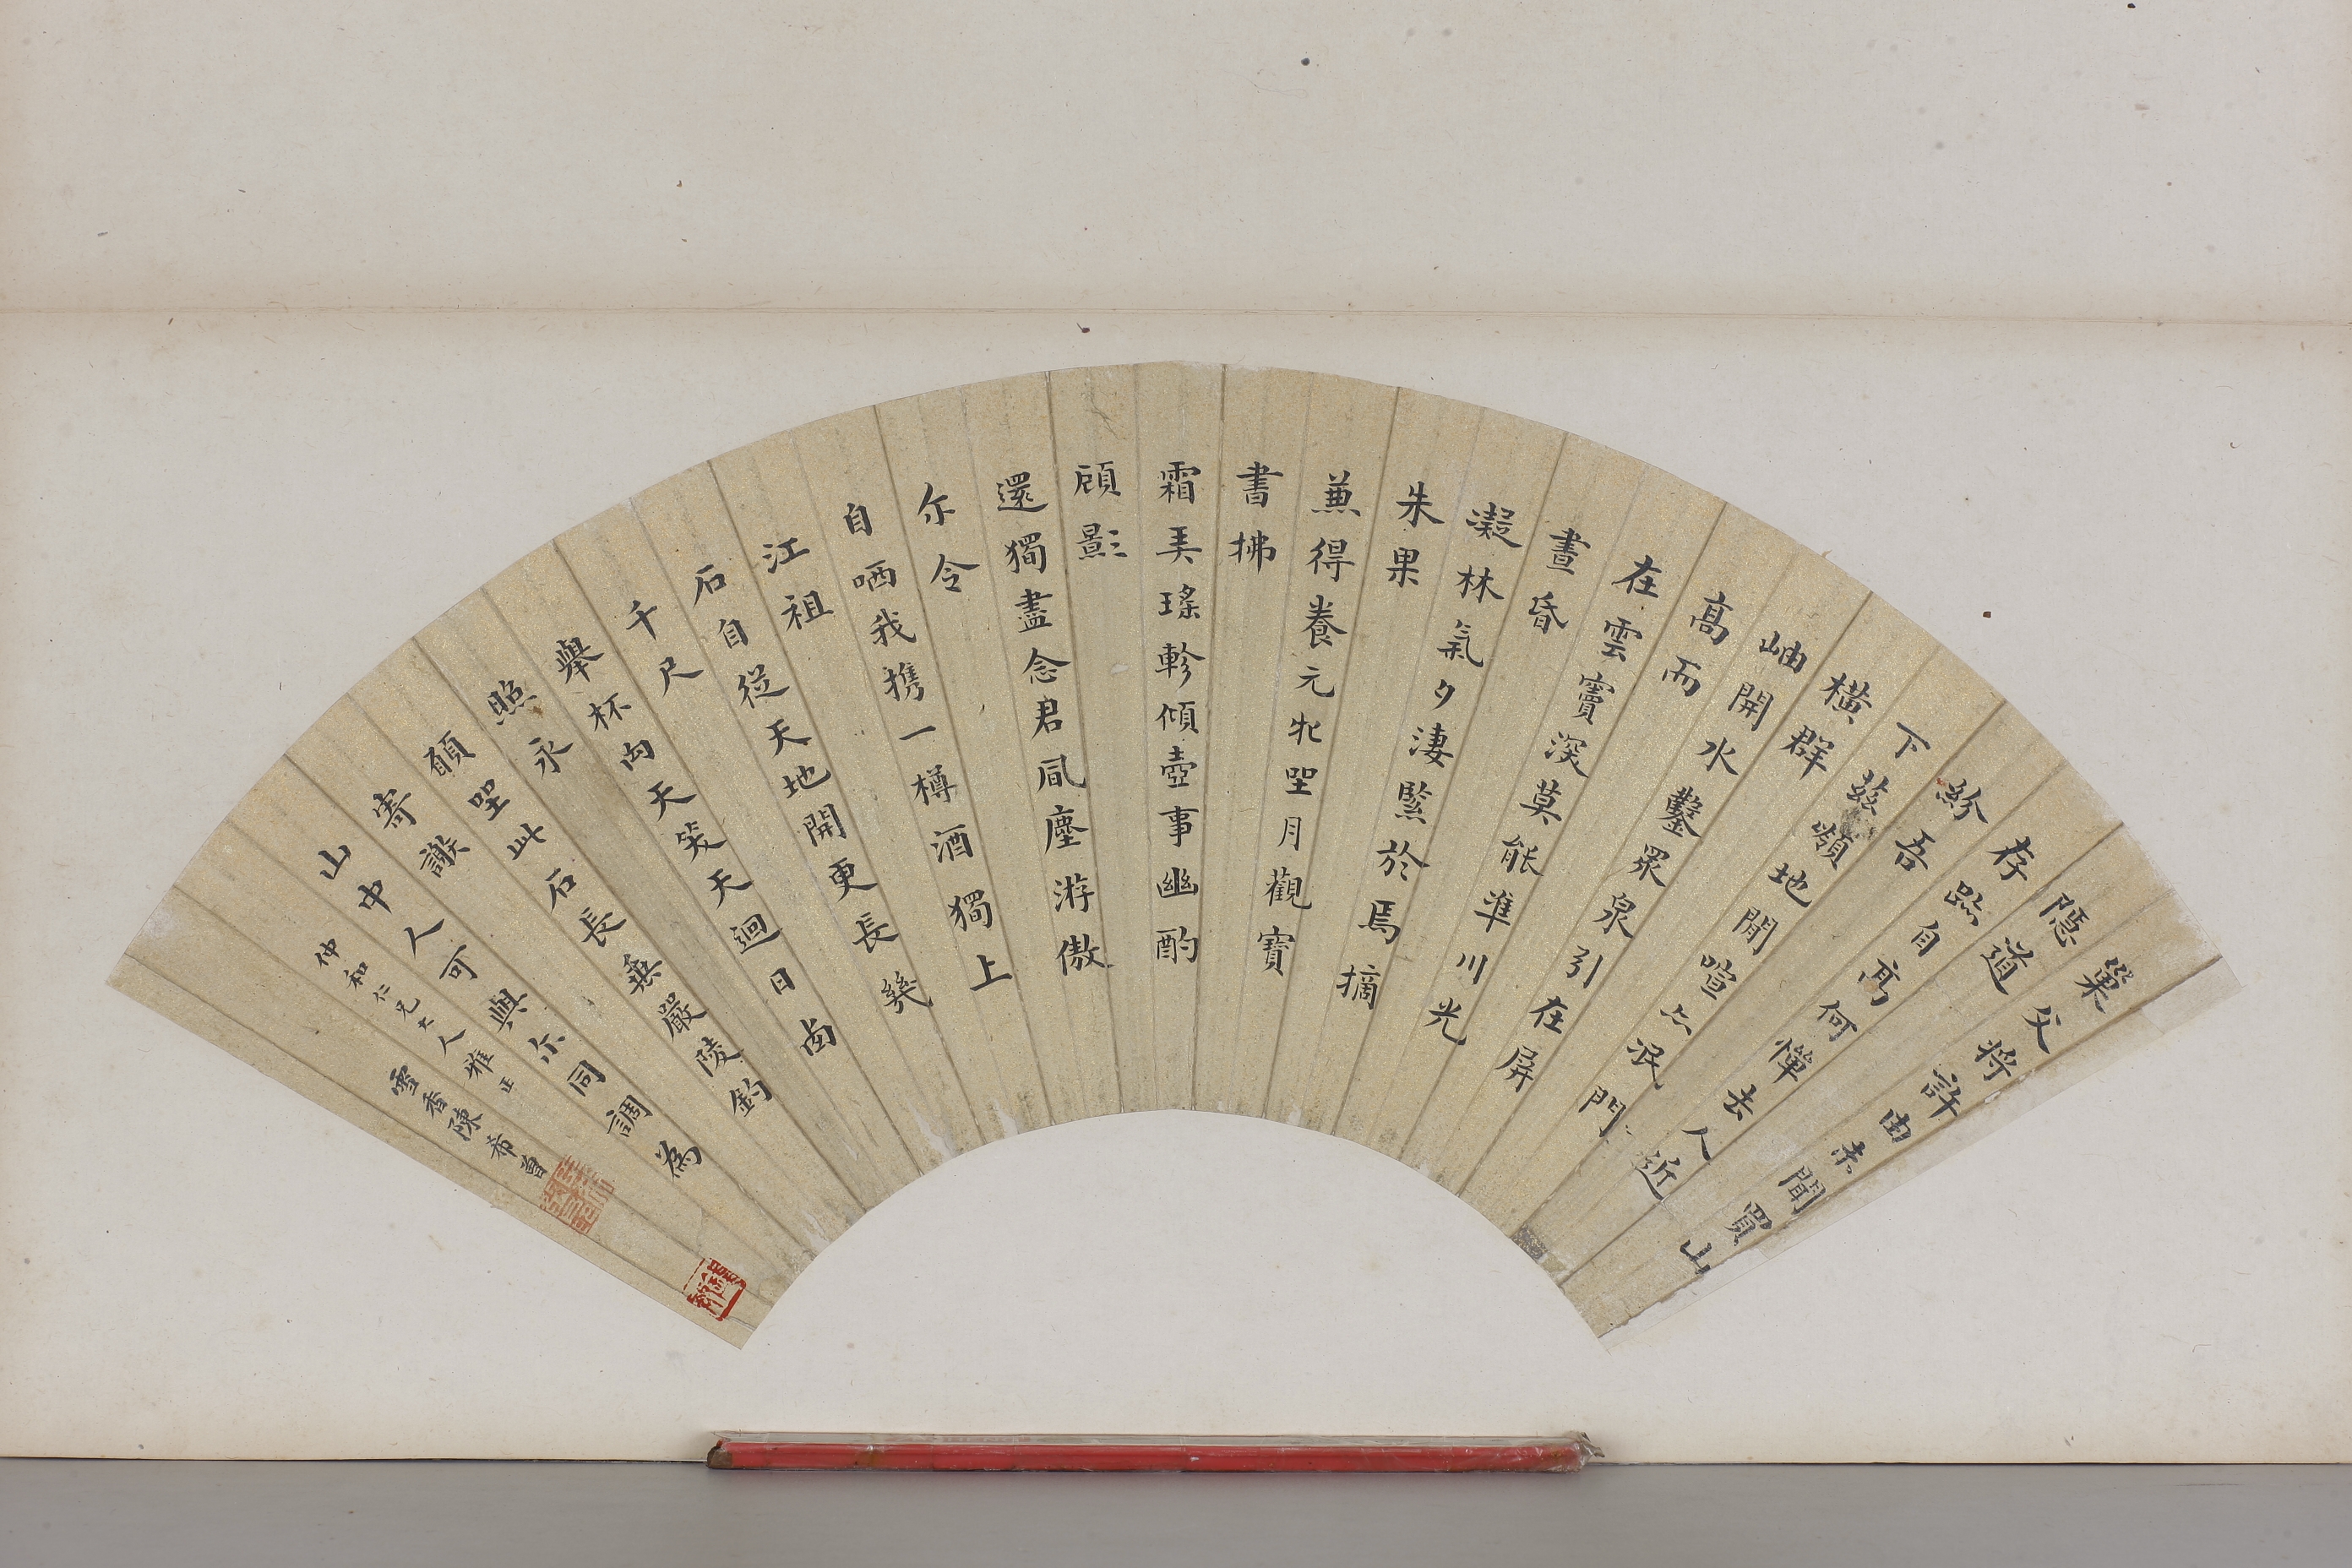 巢父將許由未聞買山
隱道
存跡自高何憚去人近
紛吾
下茲嶺地閒喧亦泯門
橫群
岫開水鑿眾泉引在屏
高而
在雲竇深莫能準川光
晝昏
凝林氣夕淒緊於焉摘
朱果
兼得養元牝坐月觀寶
書拂
霜弄瑤軫傾壺事幽酌
顧影
還獨盡念君風塵游傲
尓令
自哂我攜一樽酒獨上
江祖
石自從天地開更長幾
千尺
舉杯向天笑天迴日西
照永
願坐此石長垂嚴陵釣
寄謝
山中人可與尓同調為
仲和仁兄大人雅正
雪香陳希曾